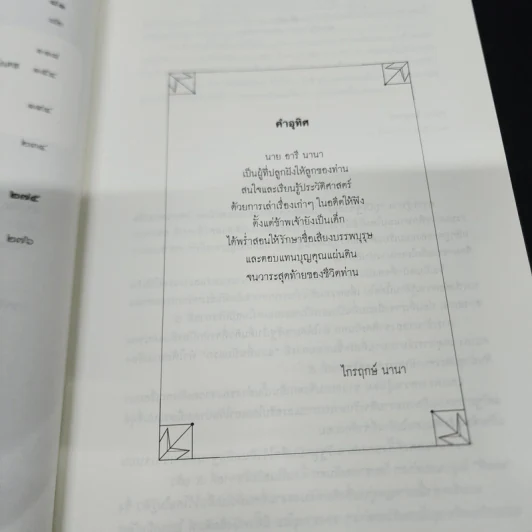 ๑๑๘
๑๕๔
๑๙๔
๒๓๔
๒๗๕
๒๗๖
คำอุทิศ
นาย อารี นานา
เป็นผู้ที่ปลูกฝังให้ลูกของท่าน
สนใจและเรียนรู้ประวัติศาสตร์
ด้วยการเล่าเรื่องเก่าๆ ในอดีตให้ฟัง
ตั้งแต่ข้าพเจ้ายังเป็นเด็ก
ได้พร่ำสอนให้รักษาชื่อเสียงบรรพบุรุษ
และตอบแทนบุญคุณแผ่นดิน
จนวาระสุดท้ายของชีวิตท่าน
ไกรฤกษ์ นานา